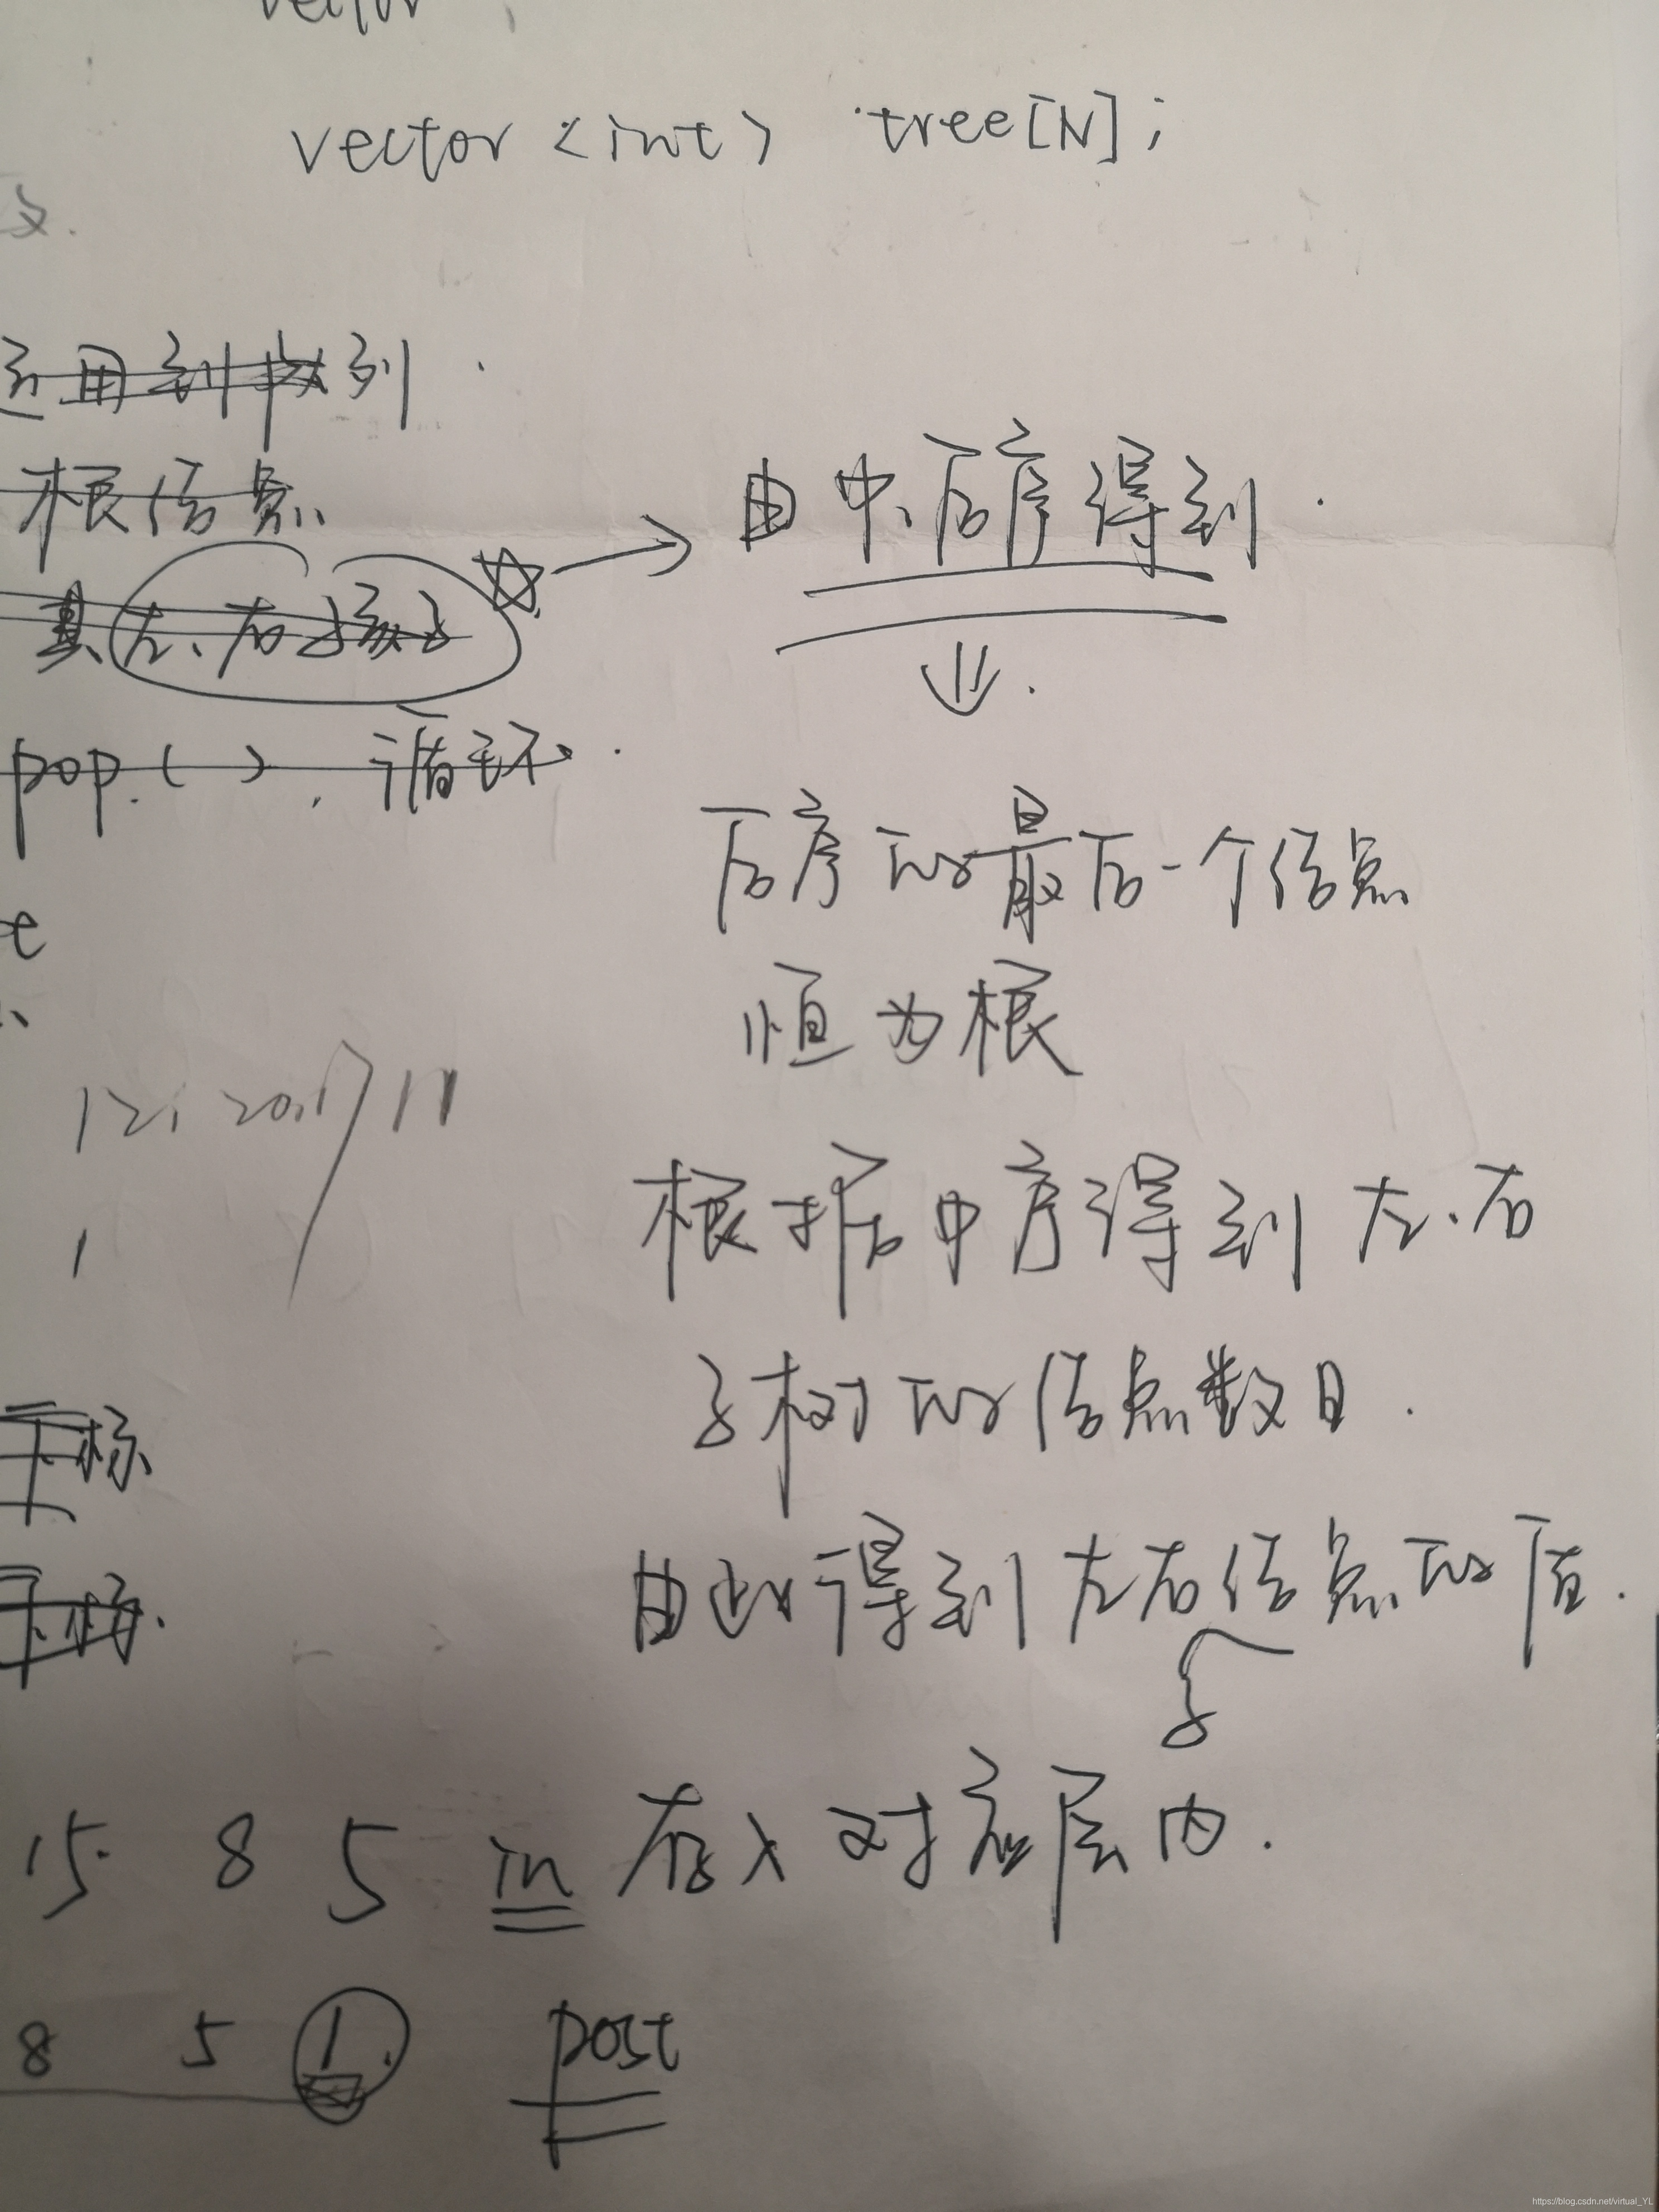 vector
vector <int> tree[N];
运用到队列.
根结点
其左、右孩子 → 由中、后序得到.
pop( ), 循环.
后序的最后一个结点
恒为根
12, 20, 17 11
根据中序得到左、右
1
子树的结点数目.
下标
由此得到左右子结点的值.
下标.
15 8 5 in 存入对应层内.
8 5 1 post
https://blog.csdn.net/virtual_YL